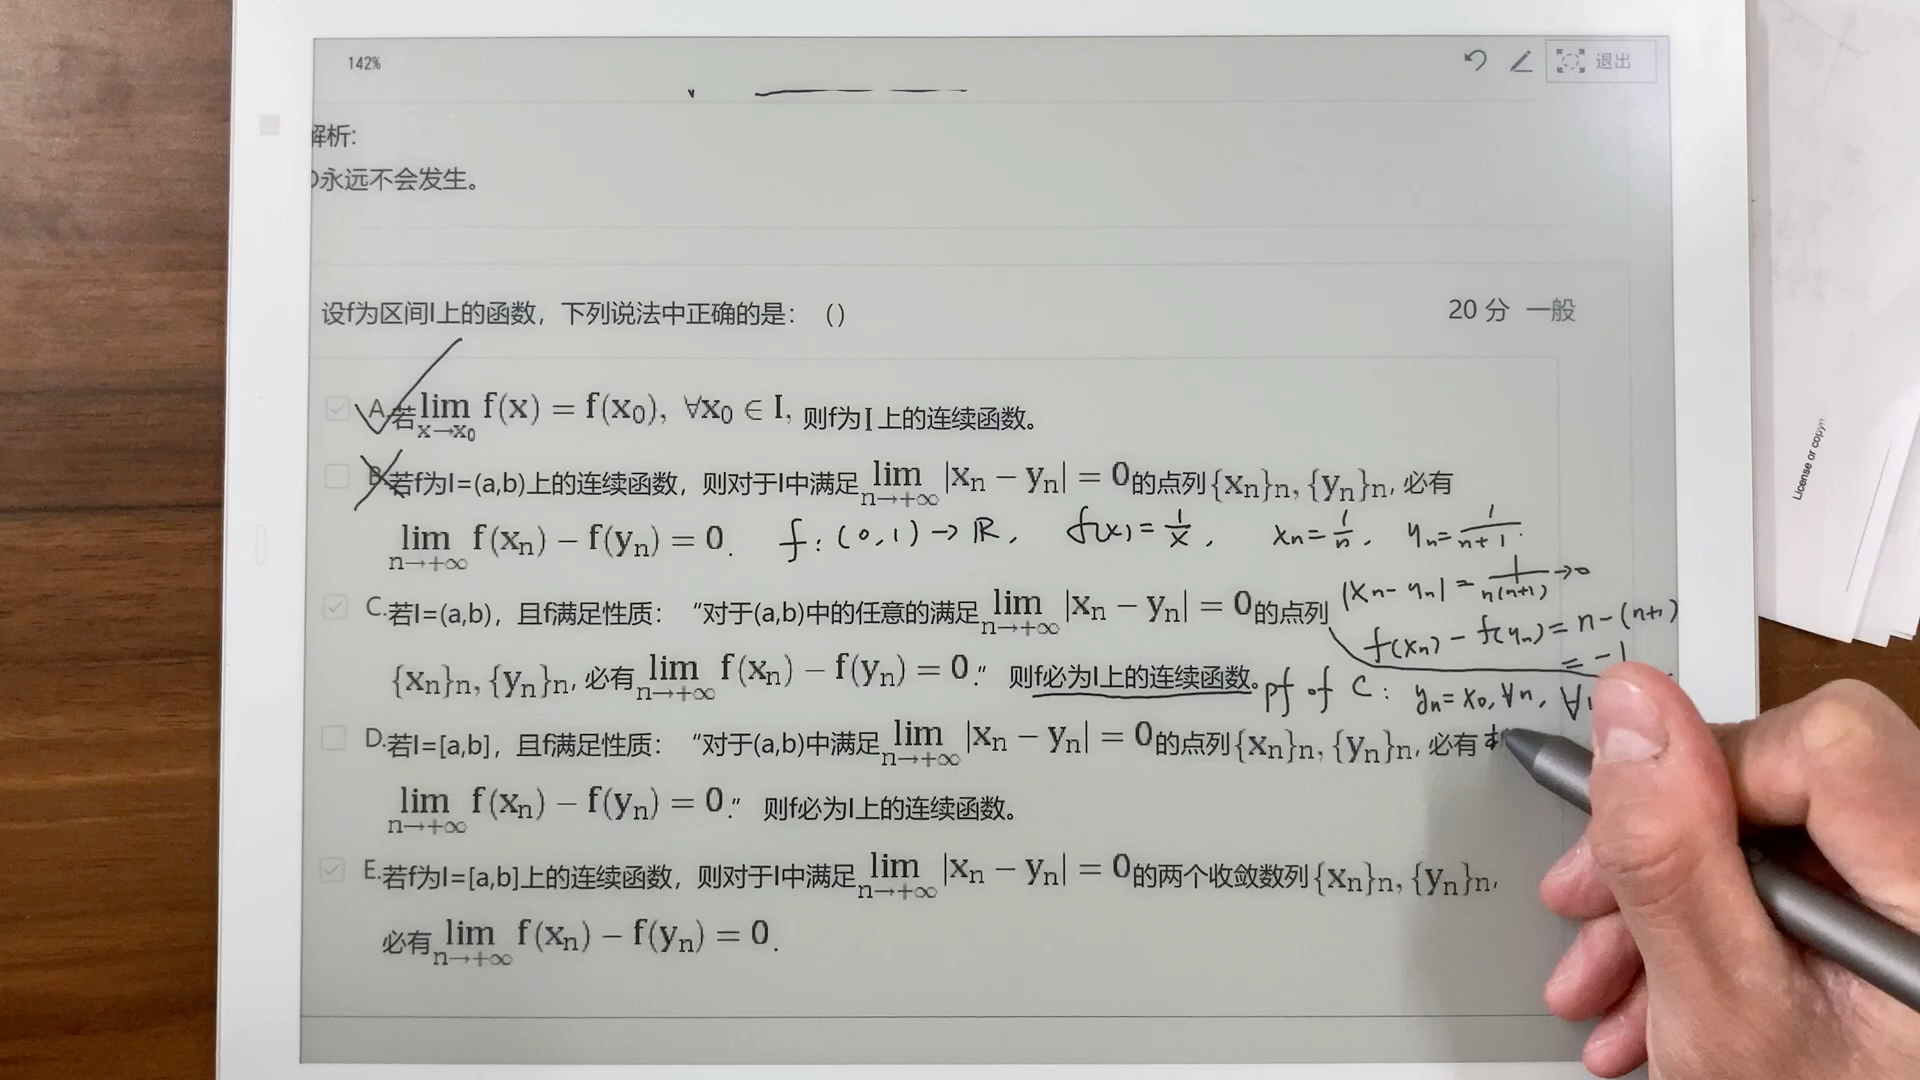 142%
退出
解析:
永远不会发生。
设f为区间I上的函数，下列说法中正确的是：()
20 分 一般
A.若lim x→x₀ f(x) = f(x₀), ∀x₀ ∈ I, 则f为I上的连续函数。
B.若f为I=(a,b)上的连续函数，则对于I中满足lim n→+∞ |xₙ − yₙ| = 0的点列{xₙ}ₙ, {yₙ}ₙ, 必有
lim n→+∞ f(xₙ) − f(yₙ) = 0.
f: (0,1) → ℝ, f(x) = 1/x, xₙ = 1/n, yₙ = 1/(n+1).
|xₙ - yₙ| = 1/(n(n+1)) → 0
C.若I=(a,b)，且f满足性质：“对于(a,b)中的任意的满足lim n→+∞ |xₙ − yₙ| = 0的点列
f(xₙ) - f(yₙ) = n - (n+1)
= -1
{xₙ}ₙ, {yₙ}ₙ, 必有lim n→+∞ f(xₙ) − f(yₙ) = 0.” 则f必为I上的连续函数。
pf of C: yₙ = x₀, ∀n, ∀
D.若I=[a,b]，且f满足性质：“对于(a,b)中满足lim n→+∞ |xₙ − yₙ| = 0的点列{xₙ}ₙ, {yₙ}ₙ, 必有
lim n→+∞ f(xₙ) − f(yₙ) = 0.” 则f必为I上的连续函数。
E.若f为I=[a,b]上的连续函数，则对于I中满足lim n→+∞ |xₙ − yₙ| = 0的两个收敛数列{xₙ}ₙ, {yₙ}ₙ,
必有lim n→+∞ f(xₙ) − f(yₙ) = 0.
License or